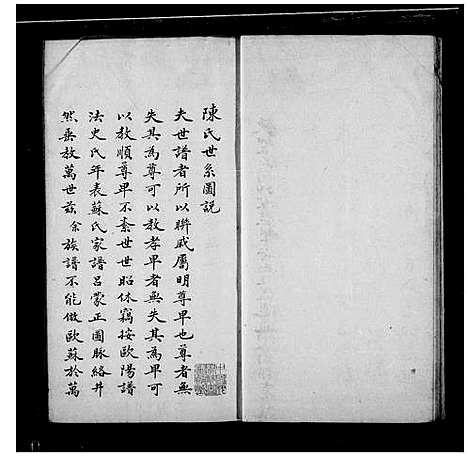 陳氏世系圖説
夫世譜者所以聯戚屬明尊卑也尊者無
失其為尊可以教孝卑者無失其為卑可
以教順尊卑不紊世世昭休竊按歐陽譜
法史氏年表蘇氏家譜呂蒙正圖脉絡井
然垂教萬世茲余族譜不能倣歐蘇於萬